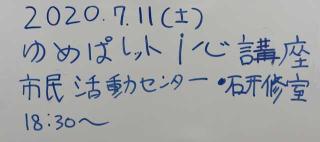 2020.7.11(土)
ゆめぱレット i心講座
市民活動センター・研修室
18:30～